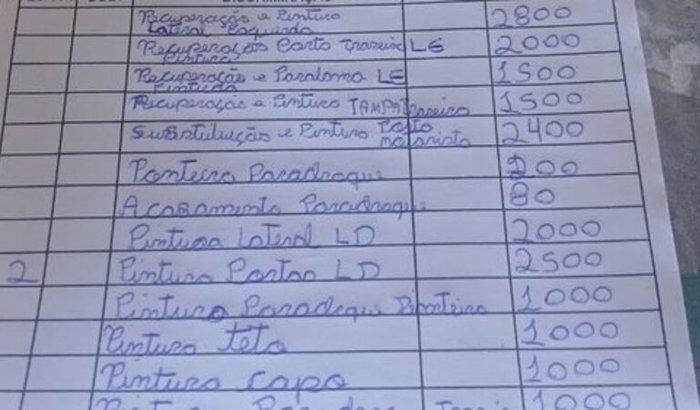 Recuperação e Pintura 2800
Lateral Esquerda
Recuperação Porta Traseira LE 2000
Pintura
Recuperação e Paralama LE 1500
Pintura
Recuperação e Pintura TAMPA Traseira 1500
Substituição e Pintura Porta 2400
motorista
Ponteira Parachoque 200
Acabamento Parachoque 80
Pintura Lateral LD 2000
2 Pintura Portas LD 2500
Pintura Parachoque Dianteiro 1000
Pintura teto 1000
Pintura capo 1000
1000